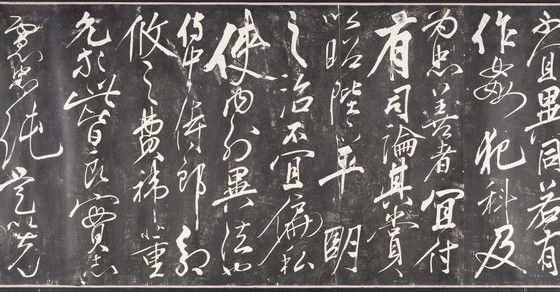 不宜異同若有
作奸犯科及
為忠善者宜付
有司論其刑賞
以昭陛下平明
之治不宜偏私
使內外異法也
侍中侍郎郭
攸之費禕董
允等此皆良實志
慮忠純是以先